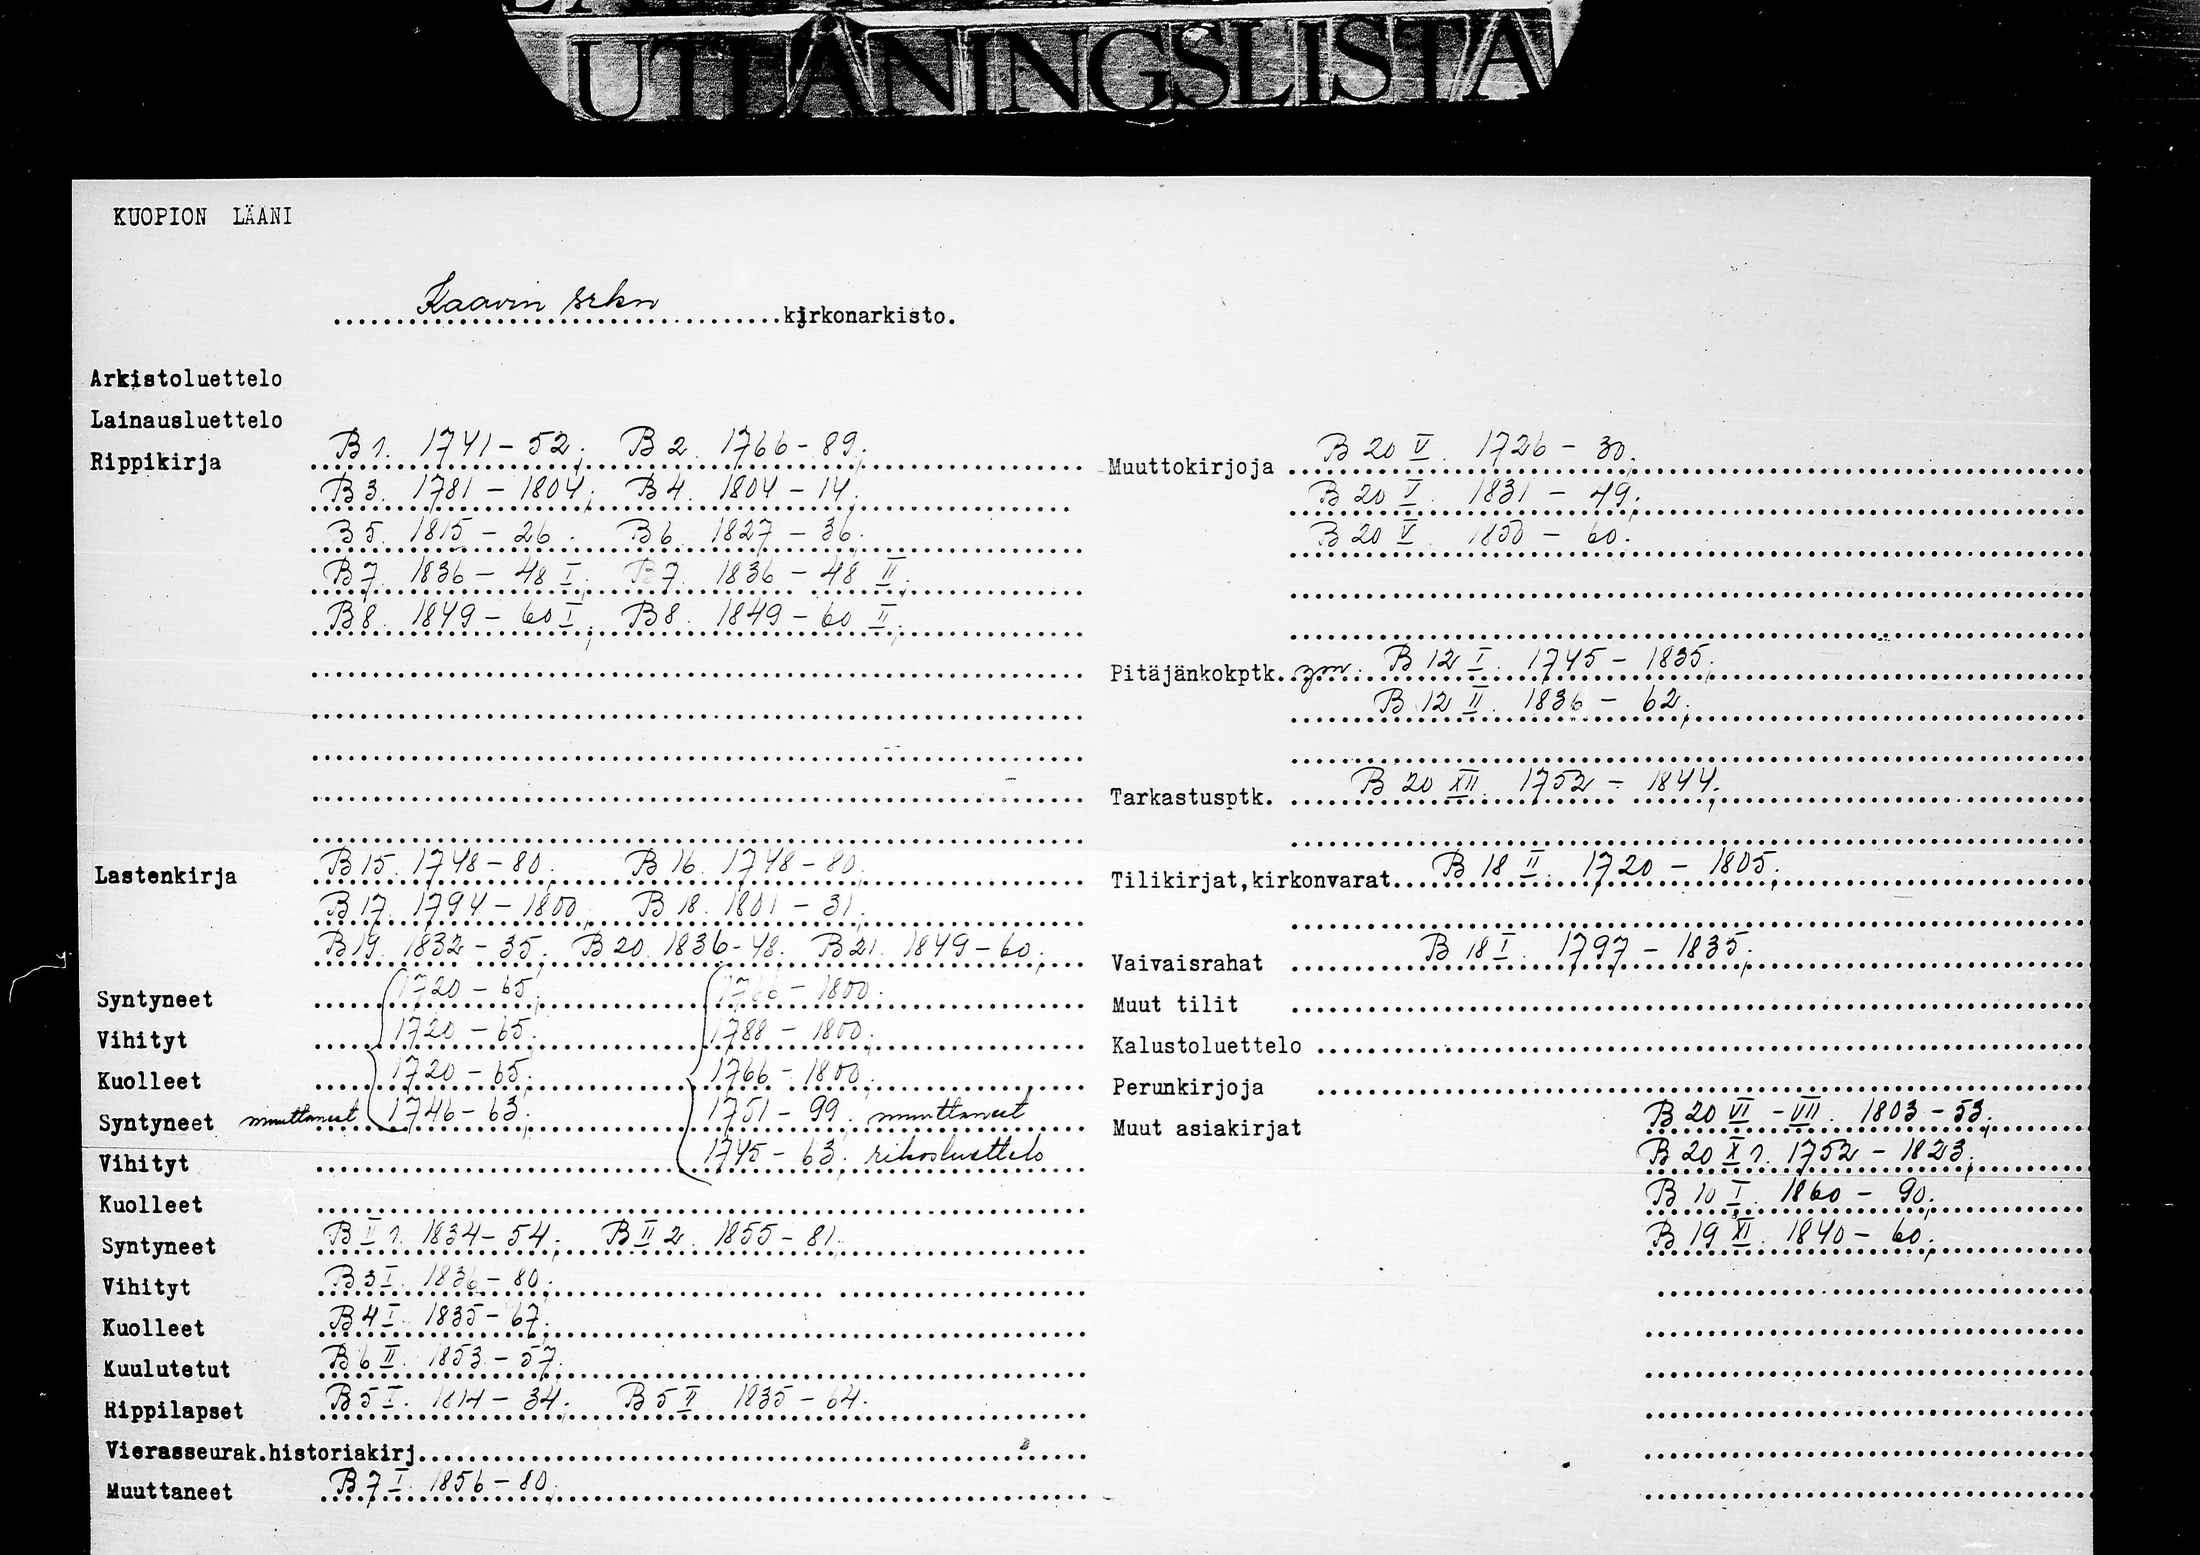 UTLÅNINGSLISTA
KUOPION LÄÄNI
Kaavin srkn kirkonarkisto.
Arkistoluettelo
Lainausluettelo
Rippikirja B 1. 1741 - 52; B 2. 1766 - 89;
B 3. 1781 - 1804; B 4. 1804 - 14.
B 5. 1815 - 26. B 6. 1827 - 36.
B 7. 1836 - 48 I; B 7. 1836 - 48 II;
B 8. 1849 - 60 I; B 8. 1849 - 60 II;
Lastenkirja B 15. 1748 - 80; B 16. 1748 - 80;
B 17. 1794 - 1800; B 18. 1801 - 31;
B 19. 1832 - 35; B 20. 1836 - 48. B 21. 1849 - 60;
Syntyneet 1720 - 65; 1766 - 1800;
Vihityt 1720 - 65; 1788 - 1800;
Kuolleet 1720 - 65; 1766 - 1800;
Syntyneet muuttaneet 1746 - 63; 1751 - 99; muuttaneet
Vihityt 1745 - 63; rikosluettelo
Kuolleet
Syntyneet B II 1. 1834 - 54; B II 2. 1855 - 81.
Vihityt B 3 I. 1836 - 80;
Kuolleet B 4 I. 1835 - 67;
Kuulutetut B 6 II. 1853 - 57.
Rippilapset B 5 I. 1814 - 34; B 5 II 1835 - 64.
Vierasseurak.historiakirj.
Muuttaneet B 7 I. 1856 - 80;
Muuttokirjoja B 20 V. 1726 - 30;
B 20 V. 1831 - 49;
B 20 V. 1850 - 60.
Pitäjänkokptk. ym. B 12 I. 1745 - 1835;
B 12 II. 1836 - 62;
Tarkastusptk. B 20 XII. 1752 - 1844;
Tilikirjat,kirkonvarat B 18 II. 1720 - 1805;
Vaivaisrahat B 18 I. 1797 - 1835;
Muut tilit
Kalustoluettelo
Perunkirjoja
Muut asiakirjat B 20 VI - VII. 1803 - 53;
B 20 X 1. 1752 - 1823;
B 10 I. 1860 - 90;
B 19 XI. 1840 - 60;